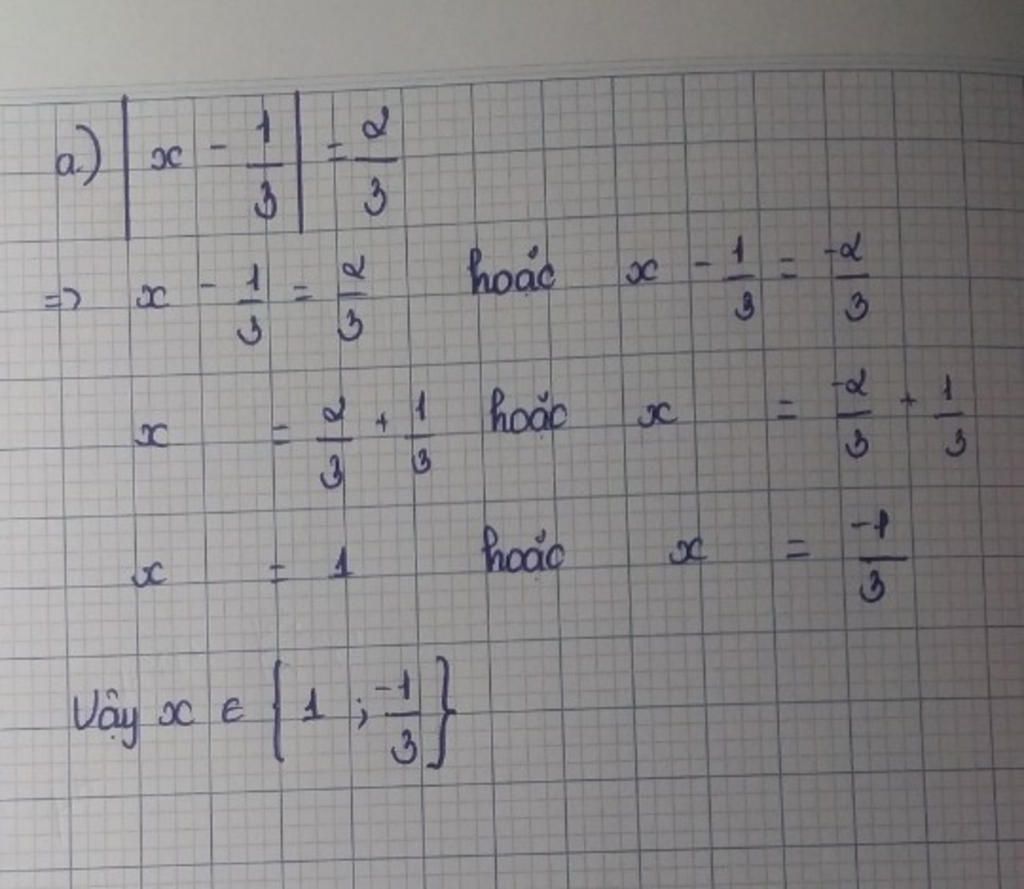 a.) |x - 1/3| = 2/3
=> x - 1/3 = 2/3 hoặc x - 1/3 = -2/3
x = 2/3 + 1/3 hoặc x = -2/3 + 1/3
x = 1 hoặc x = -1/3
Vậy x ∈ {1 ; -1/3}